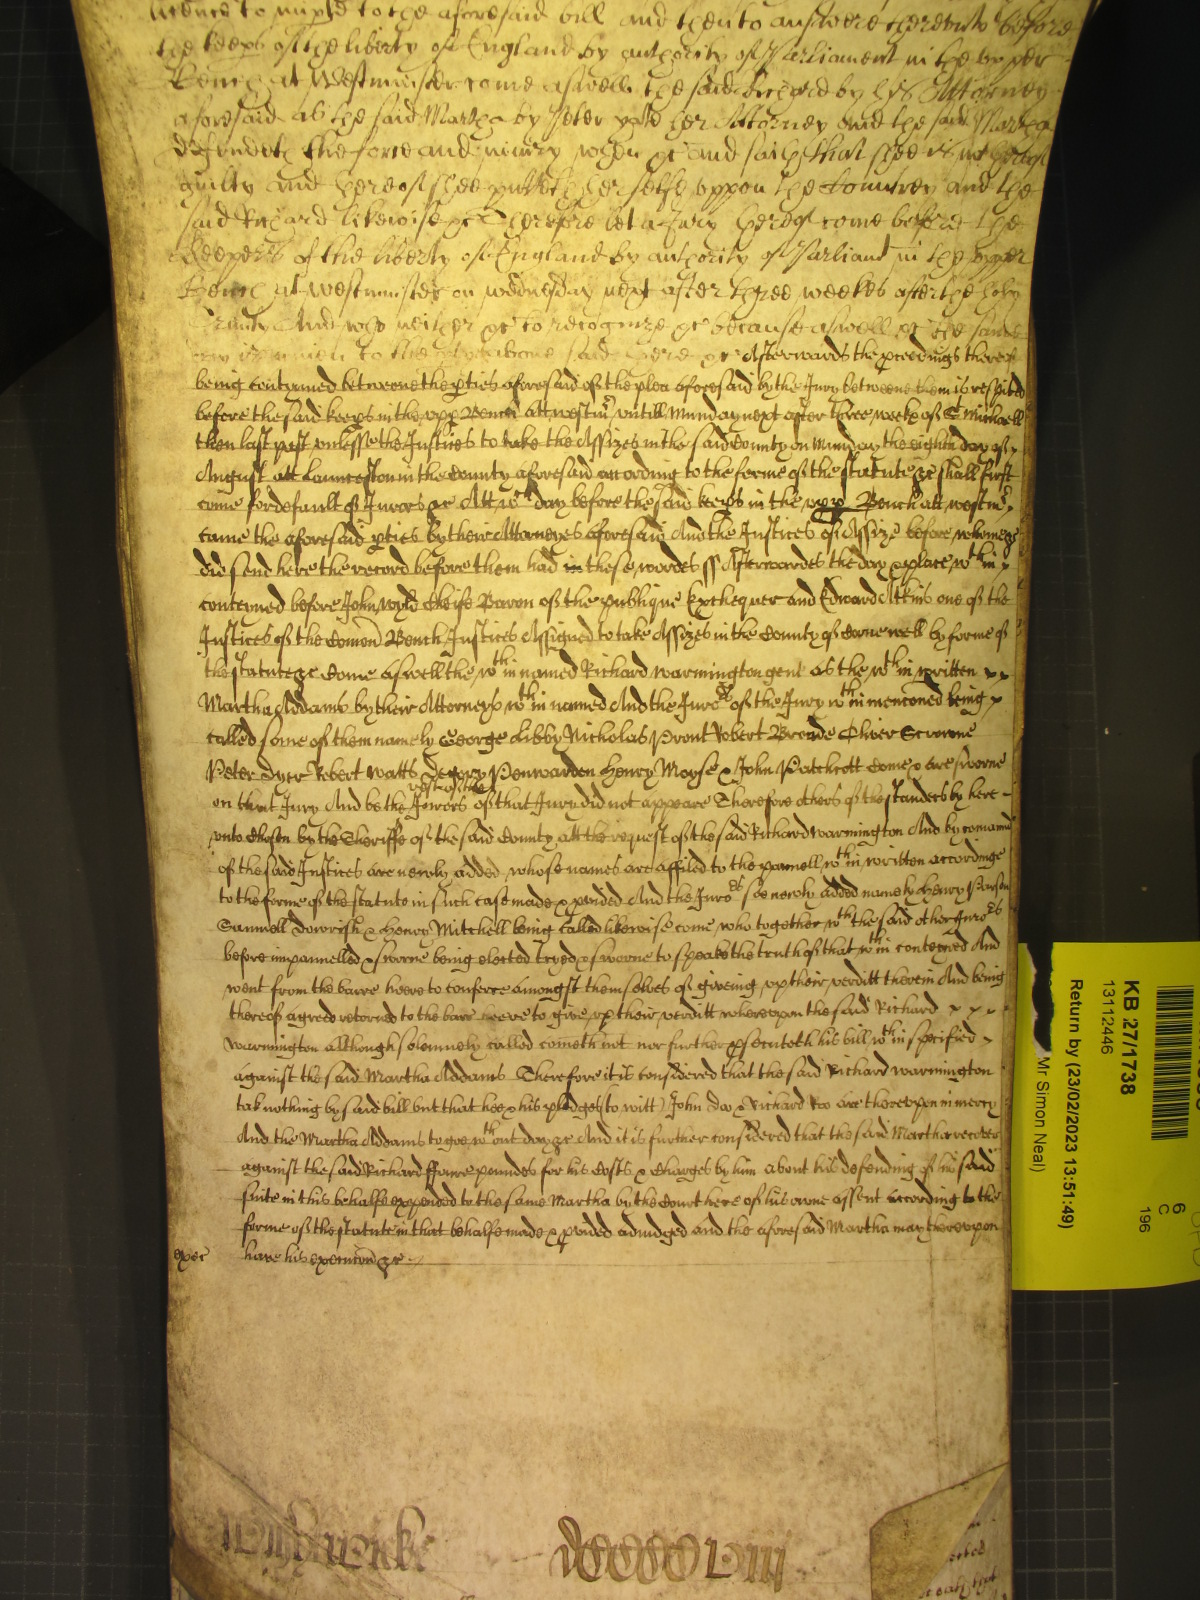 licence to imparle to the aforesaid bill and then to answere thereunto before
the keeps of the liberty of England by authority of Parliament in the upper
Bench at Westminster come aswell the said Richard by his Attorney
aforesaid as the said Martha by Peter yate her Attorney And the said Martha
defendeth the force and iniury when &c and saith that shee is not thereof
guilty and hereof shee putteth her selfe uppon the Countrey and the
said Richard likewise &c Therefore let a Jury hereof come before the
keepers of the liberty of England by authority of Parliamt in the upper
Bench at Westminster on wednesday next after three weekes after the holy
Trinity And who neither &c to recognize &c because aswell &c the same
day is given to the aforesaid here &c Afterwards the pceedings thereof
being continued betweene the pties aforesaid of the plea aforesaid by the Jury betweene them is respited
before the said keeps in the upp Bench att westmr untill Munday next after three weekes of St Michaell
then last past unlesse the Justices to take the Assizes in the said County on Munday the eighth day of
August att Launceston in the County aforesaid according to the forme of the statute &c shall first
come for default of Jurors &c Att wch day before the said keeps in the upp Bench att westmr
came the aforesaid pties by their Attorneyes aforesaid And the Justices of Assize before whome &c
did send here the record before them had in these wordes ss Afterwardes the day & place wthin
conteyned before John Wyld Cheife Baron of the publique Exchequer and Edward Atkins one of the
Justices of the Comon Bench Justices Assigned to take Assizes in the County of Cornewell by forme of
the statute &c Come aswell the wthin named Richard Warmington gent as the wthin written
Martha Addams by their Attorneys wthin named And the Juror of the Jury wthin menconed being
called some of them namely George Libby Nicholas Pront Robert Brende Oliver
Peter Dyer Robert Watts Degory Penwarden Henry Moyse & John Patchcott Come & are sworne
rest of the
on that Jury And bs the Jurors of that Jury did not appeare Therefore others of the standers by here
unto Chosen by the Sheriffe of the said County att the request of the said Richard Warmington And by comannd
of the said Justices are newly added whose names are affiled to the pannell wthin written accordinge
to the forme of the statute in such case made & pvided And the Jurors soe newly added namely Henry
Samuell Dowrish & Henry Mitchell being called likewise come who together wth the said other Jurors
before impannelled & sworne being elected tryed & sworne to speake the truth of that wthin conteyned And
went from the barre heere to conferre amongst themselves of giveing up their verditt therein And being
thereof agreed retorned to the barr heere to give up their verditt whereupon the said Richard
Warmington although solemnely called cometh not nor further psecuteth his bill wthin specified
against the said Martha Addams Therefore it is considered that the said Richard Warmington
tak nothing by said bill but that hee & his pledges to witt John Doo & Richard Roo are thereupon in mercy
And the Martha Addams to goe wthout day &c And it is further considered that the said Martha recover
against the said Richard ffoure poundes for his Costs & Charges by him about his defending of his said
suite in this behalfe expended to the same Martha by the Court here of his owne assent according to the
forme of the statute in that behalfe made & pvided adiudged and the aforesaid Martha may thereupon
exec have his execucon &c
KB 27/1738
13112446
Return by (23/02/2023 13:51:49)
Mr Simon Neal)
6
C
196